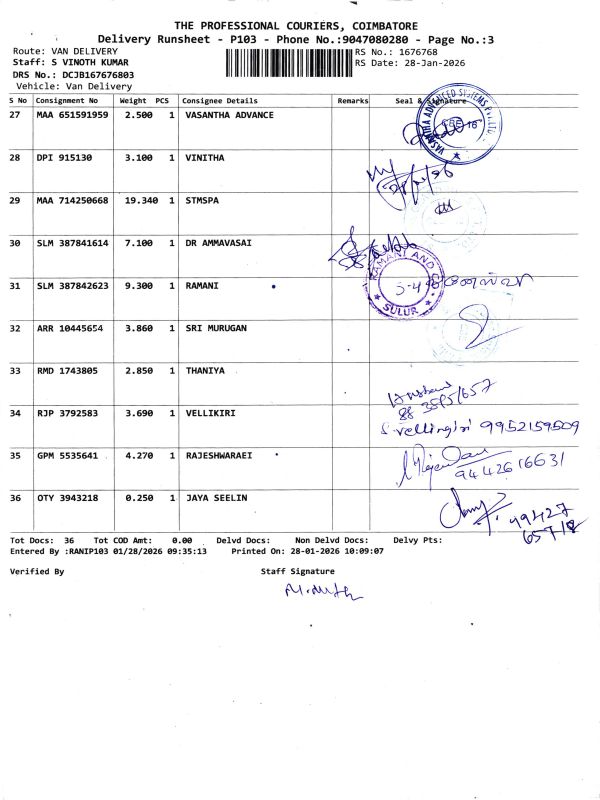 THE PROFESSIONAL COURIERS, COIMBATORE
Delivery Runsheet - P103 - Phone No.:9047080280 - Page No.:3
Route: VAN DELIVERY
RS No.: 1676768
Staff: S VINOTH KUMAR
RS Date: 28-Jan-2026
DRS No.: DCJB167676803
Vehicle: Van Delivery
S No Consignment No Weight PCS Consignee Details Remarks Seal & Signature
27 MAA 651591959 2.500 1 VASANTHA ADVANCE
VASANTHA ADVANCED SYSTEMS PVT.LTD.
28 DPI 915130 3.100 1 VINITHA
29 MAA 714250668 19.340 1 STMSPA
30 SLM 387841614 7.100 1 DR AMMAVASAI
31 SLM 387842623 9.300 1 RAMANI
RAMANI AND CO.
SULUR
32 ARR 10445654 3.860 1 SRI MURUGAN
33 RMD 1743805 2.850 1 THANIYA
34 RJP 3792583 3.690 1 VELLIKIRI
S.vellingiri 9952159509
35 GPM 5535641 4.270 1 RAJESHWARAEI
9442616631
36 OTY 3943218 0.250 1 JAYA SEELIN
99427
65718
Tot Docs: 36 Tot COD Amt: 0.00 Delvd Docs: Non Delvd Docs: Delvy Pts:
Entered By :RANIP103 01/28/2026 09:35:13 Printed On: 28-01-2026 10:09:07
Verified By Staff Signature